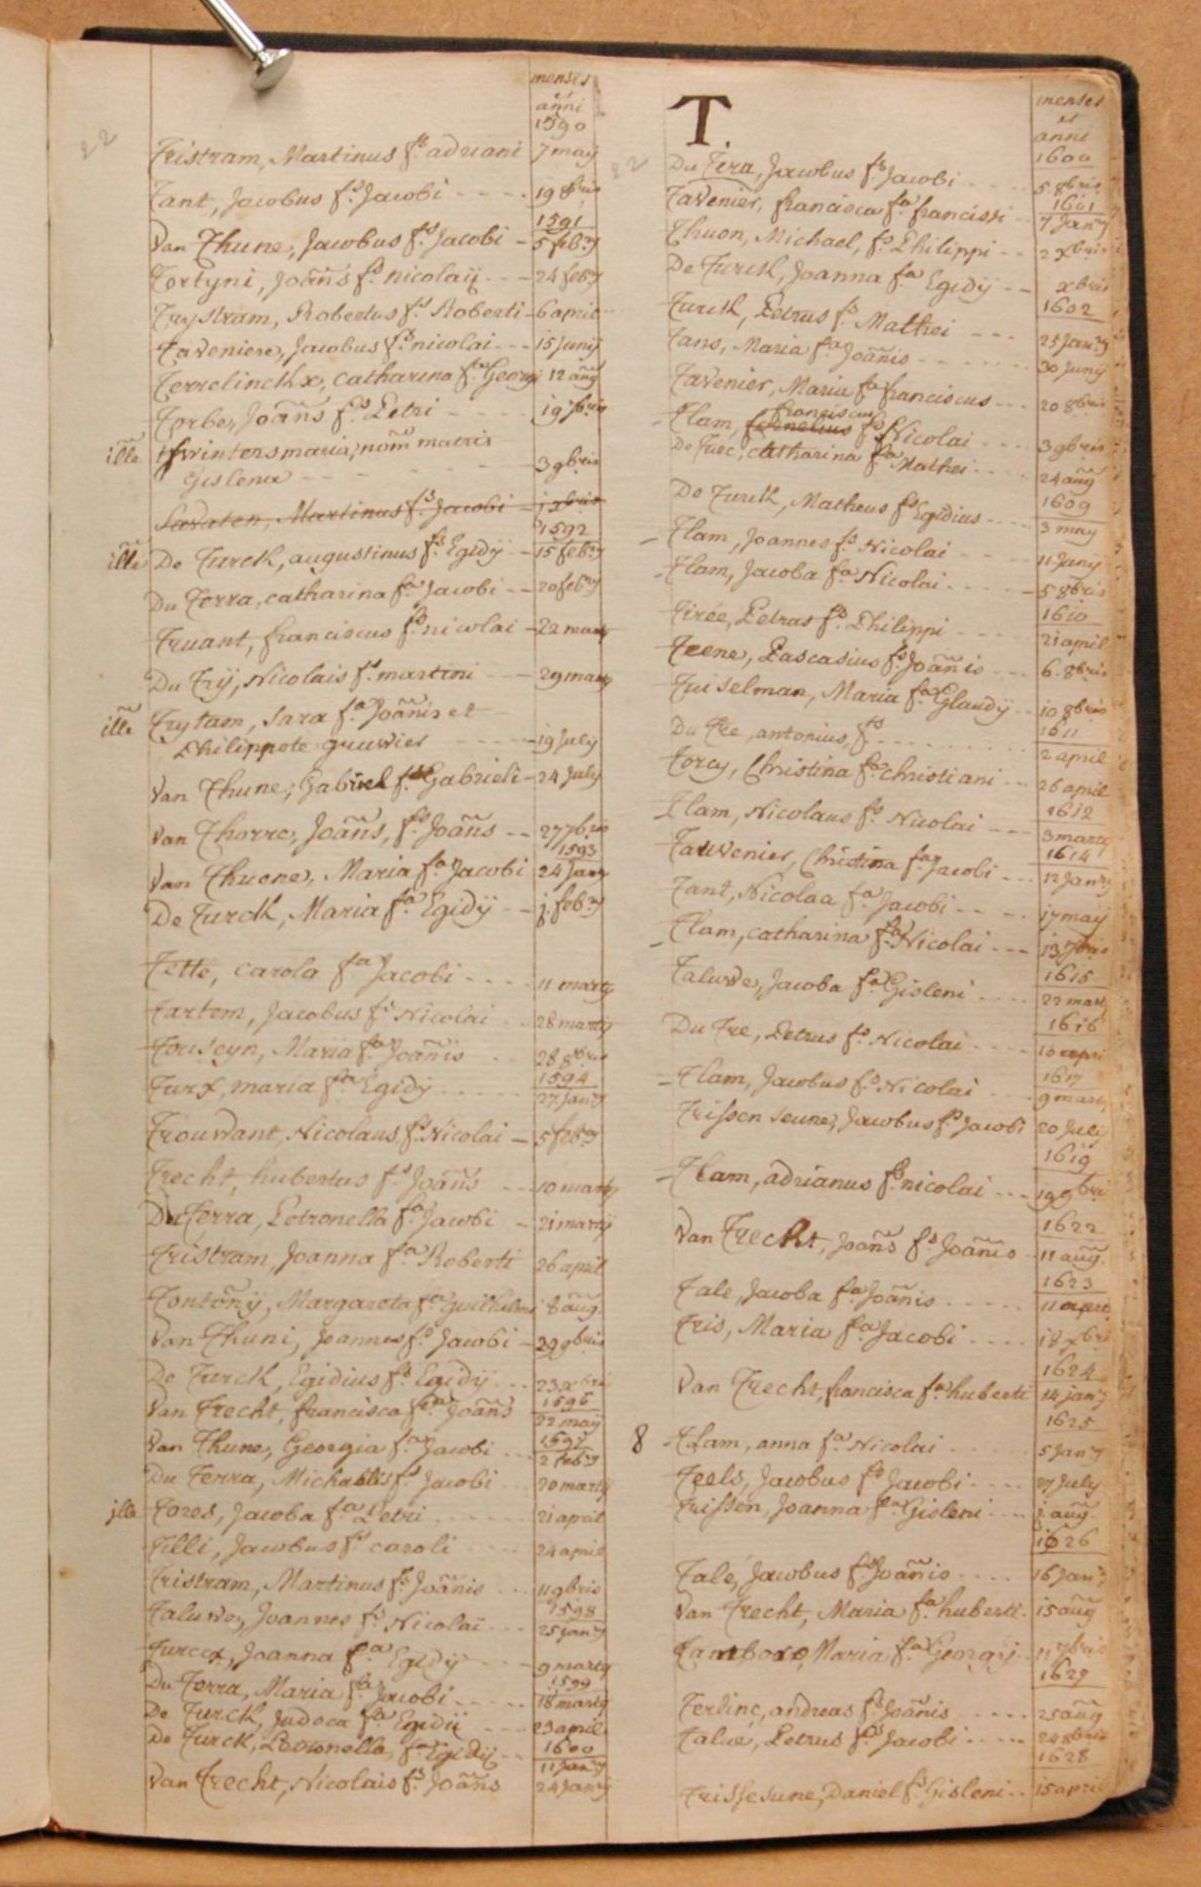 22
menses
et
anni
1590
Tristram, Martinus fs adriani 7 maij
Tant, Jacobus fs Jacobi 19 8bris
1591
Van Thune, Jacobus fs Jacobi 5 febry
Tortyni, Joañs fs nicolaij 24 febry
Trystram, Robertus fs Roberti 6 april
Taveniere, Jacobus fs nicolai 15 junij
Terrelinckx, catharina fa Georgi 12 aug
Torbe, Joañs fs Petri 19 7bris
ille twintersmaria, nom matris
Gislena 3 9bris
Savaten, Martinus fs Jacobi 1 xbris
1592
ille De Turck, augustinus fs Egidij 15 febry
Du Terra, catharina fa Jacobi 20 febry
Truant, franciscus fs nicolai 22 marty
Du Trij, Nicolais fs martini 29 marty
ille Trytam, Sara fa Joañis et
Philippote gruwier 19 July
Van Thune, Gabriel fs Gabrieli 24 July
Van Thorre, Joañs, fs Joañs 27 7bris
1593
Van Thuone, Maria fa Jacobi 24 Jany
De Turck, Maria fa Egidij j. febry
Tette, carola fa Jacobi 11 marty
Tartem, Jacobus fs Nicolai 28 marty
Touseyn, Maria fa Joañis 28 8bris
1594
Turx, maria fa Egidij 27 Jany
Trouwant, Nicolaus fs Nicolai 5 febry
Trecht, hubertus fs Joañs 10 marty
Du Terra, Petronella fa Jacobi 21 martij
Tristram, Joanna fa Roberti 26 april
Tontonij, Margareta fa Guilhelmi 8 aug.
Van Thuni, Joannes fs Jacobi 29 9bris
De Turck, Egidius fs Egidij 23 xbris
1596
Van Trecht, francisca fa Joañs 22 maij
1597
Van Thune, Georgia fa Jacobi 2 febry
Du Terra, Michaelis fs Jacobi 20 marty
jlle Tores, Jacoba fa Petri 21 april
Tilli, Jacobus fs caroli 24 april
Tristram, Martinus fs Joañis 11 9bris
1598
Taluwe, Joannes fs Nicolai 25 Jany
Turcx, Joanna fa Egidij 9 marty
1599
Du Terra, Maria fa Jacobi 18 marty
De Turck, Judoca fa Egidij 23 april
1600
De Turck, Petronella, fa Egidij 11 Jany
Van Trecht, Nicolais fs Joañs 24 Jany
22
T.
menses
et
anni
1600
Du Tera, Jacobus fs Jacobi 5 8bris
1601
Tavenier, francisca fa francissi 7 Jany
Thuon, Michael, fs Philippi 2 xbris
De Turck, Joanna fa Egidij xbris
1602
Turck, Petrus fs Mathei 25 Jany
Tans, Maria fa Joañis 30 Junij
Tavenier, Maria fa franciscus 20 8bris
franciscus
- Tlam, Cornelius fs Nicolai 3 9bris
De Turc, catharina fa Mathei 24 aug
1609
De Turck, Matheus fs Egidius 3 may
- Tlam, Joannes fs Nicolai 11 Junij
- Tlam, Jacoba fa Nicolai 5 8bris
1610
Tirée, Petrus fs Philippi 21 april
Teene, Pascasius fs Joañis 6. 8bris
Tuiselman, Maria fa Glaudij 10 8bris
1611
Du Tre, antonius, fs 2 april
Torcy, Christina fa christiani 26 april
1612
- Tlam, Nicolaus fs Nicolai 3 marty
1614
Tauvenier, Christina fa Jacobi 12 Jany
Tant, Nicolaa fa Jacobi 17 maij
- Tlam, catharina fa Nicolai 13 7bris
1615
Taluwe, Jacoba fa Gisleni 22 mart
1616
Du Tre, Petrus fs Nicolai 10 apri
1617
- Tlam, Jacobus fs Nicolai 9 mart
Trissen seune, Jacobus fs Jacobi 20 July
1619
- Tlam, adrianus fs nicolai 19 9bri
1622
Van Trecht, Joañs fs Joañis 11 aug
1623
Tale, Jacoba fa Joañis 11 april
Tris, Maria fa Jacobi 18 xbri
1624
Van Trecht, francisca fa huberti 14 jany
1625
8 - Tlam, anna fa Nicolai 5 Jany
Teels, Jacobus fs Jacobi 27 July
Trissen, Joanna fa Gisleni j. aug
1626
Tale, Jacobus fs Joañis 16 Jan
Van Trecht, Maria fa huberti 15 aug
Tambore, Maria fa Georgij 11 7bris
1627
Terlinc, andreas fs Joañis 25 aug
Talié, Petrus fs Jacobi 24 8bris
1628
Trissesune, Daniel fs Gisleni 15 april